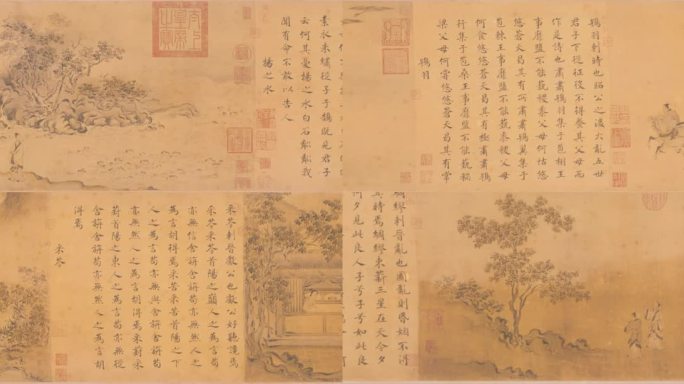 素衣朱繡從子于鵠既見君子
云何其憂揚之水白石粼粼我
聞有命不敢以告人
揚之水
鴇羽刺時也昭公之後大亂五世
君子下從征役不得養其父母而
作是詩也肅肅鴇羽集于苞栩王
事靡盬不能蓺稷黍父母何怙悠
悠蒼天曷其有所肅肅鴇翼集于
苞棘王事靡盬不能蓺黍稷父母
何食悠悠蒼天曷其有極肅肅鴇
行集于苞桑王事靡盬不能蓺稻
梁父母何嘗悠悠蒼天曷其有常
鴇羽
采苓刺晉獻公也獻公好聽讒焉
采苓采苓首陽之巔人之為言苟
亦無信舍旃舍旃苟亦無然人之
為言胡得焉采苦采苦首陽之下
人之為言苟亦無與舍旃舍旃苟
亦無然人之為言胡得焉采葑采
葑首陽之東人之為言苟亦無從
舍旃舍旃苟亦無然人之為言胡
得焉
采苓
綢繆刺晉亂也國亂則昏姻不得
其時焉綢繆束薪三星在天今夕
何夕見此良人子兮子兮如此良